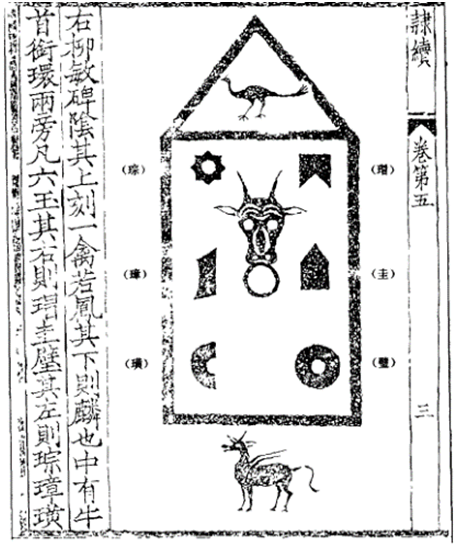 隷續
卷第五
三
(瑁)
(圭)
(璧)
(琮)
(璋)
(璜)
右柳敏碑陰其上刻一禽若鳳其下則麟也中有牛
首銜環兩旁凡六玉其右則瑁圭璧其左則琮璋璜